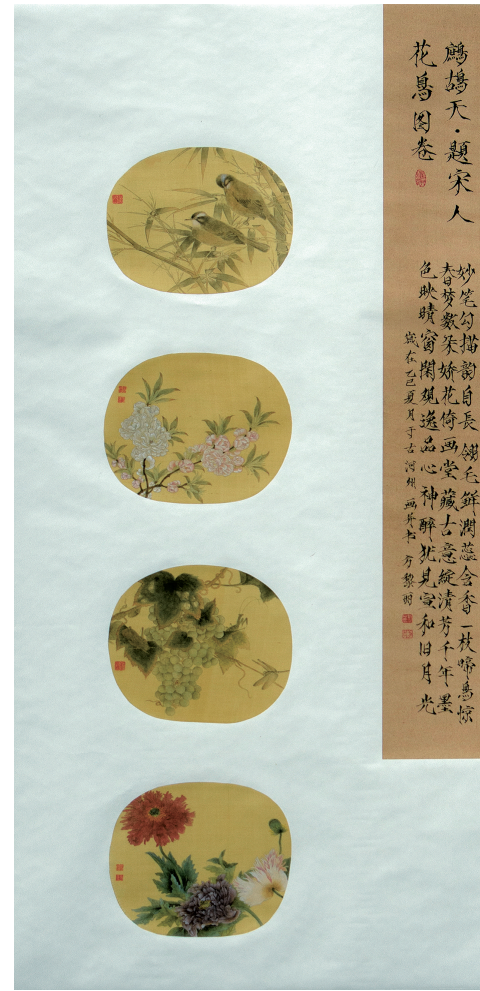 鹧鸪天·题宋人
花鸟图卷
妙笔勾描韵自长翎毛鲜润蕊含香一枝啼鸟惊
春梦数朵娇花倚画堂藏古意绽清芳千年墨
色映晴窗闲观逸品心神醉犹见宣和旧月光
岁在乙巳夏月于古河州画并书方黎明